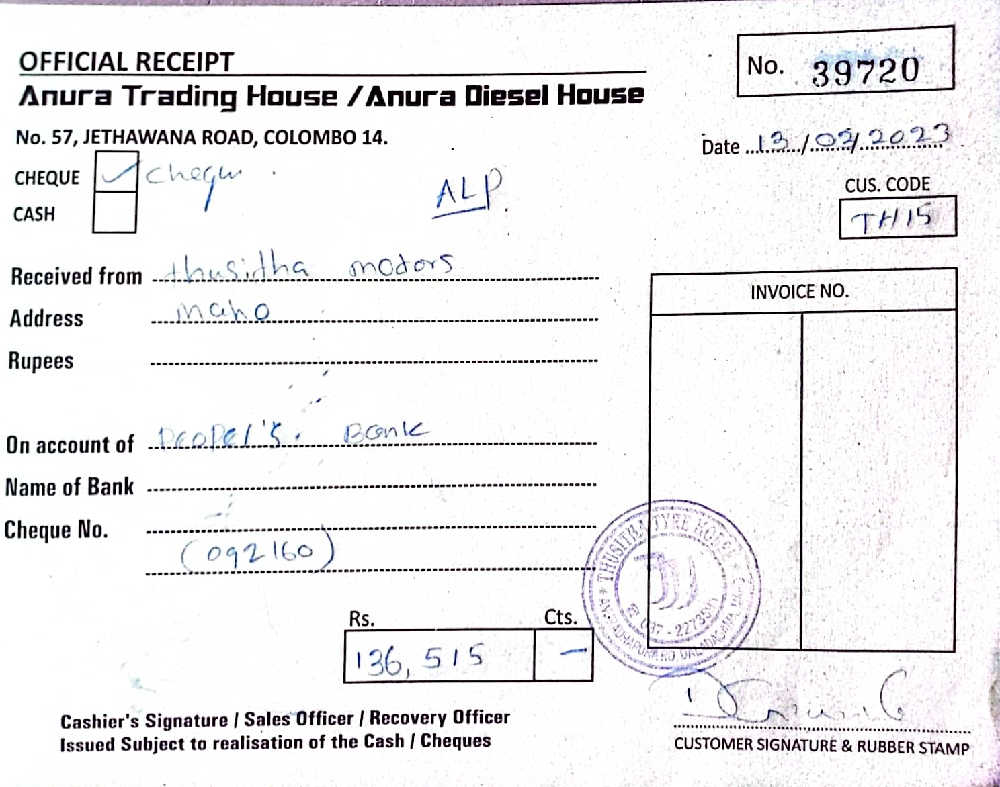 OFFICIAL RECEIPT
No. 39720
Anura Trading House / Anura Diesel House
No. 57, JETHAWANA ROAD, COLOMBO 14.
Date 13/02/2023
CHEQUE ✓ cheque
CASH
ALP.
CUS. CODE
TH15
Received from thusitha motors
Address maho
Rupees
INVOICE NO.
On account of Peopel's. Bank
Name of Bank
Cheque No.
(092160)
Rs. Cts.
136,515 —
Cashier's Signature / Sales Officer / Recovery Officer
Issued Subject to realisation of the Cash / Cheques
CUSTOMER SIGNATURE & RUBBER STAMP